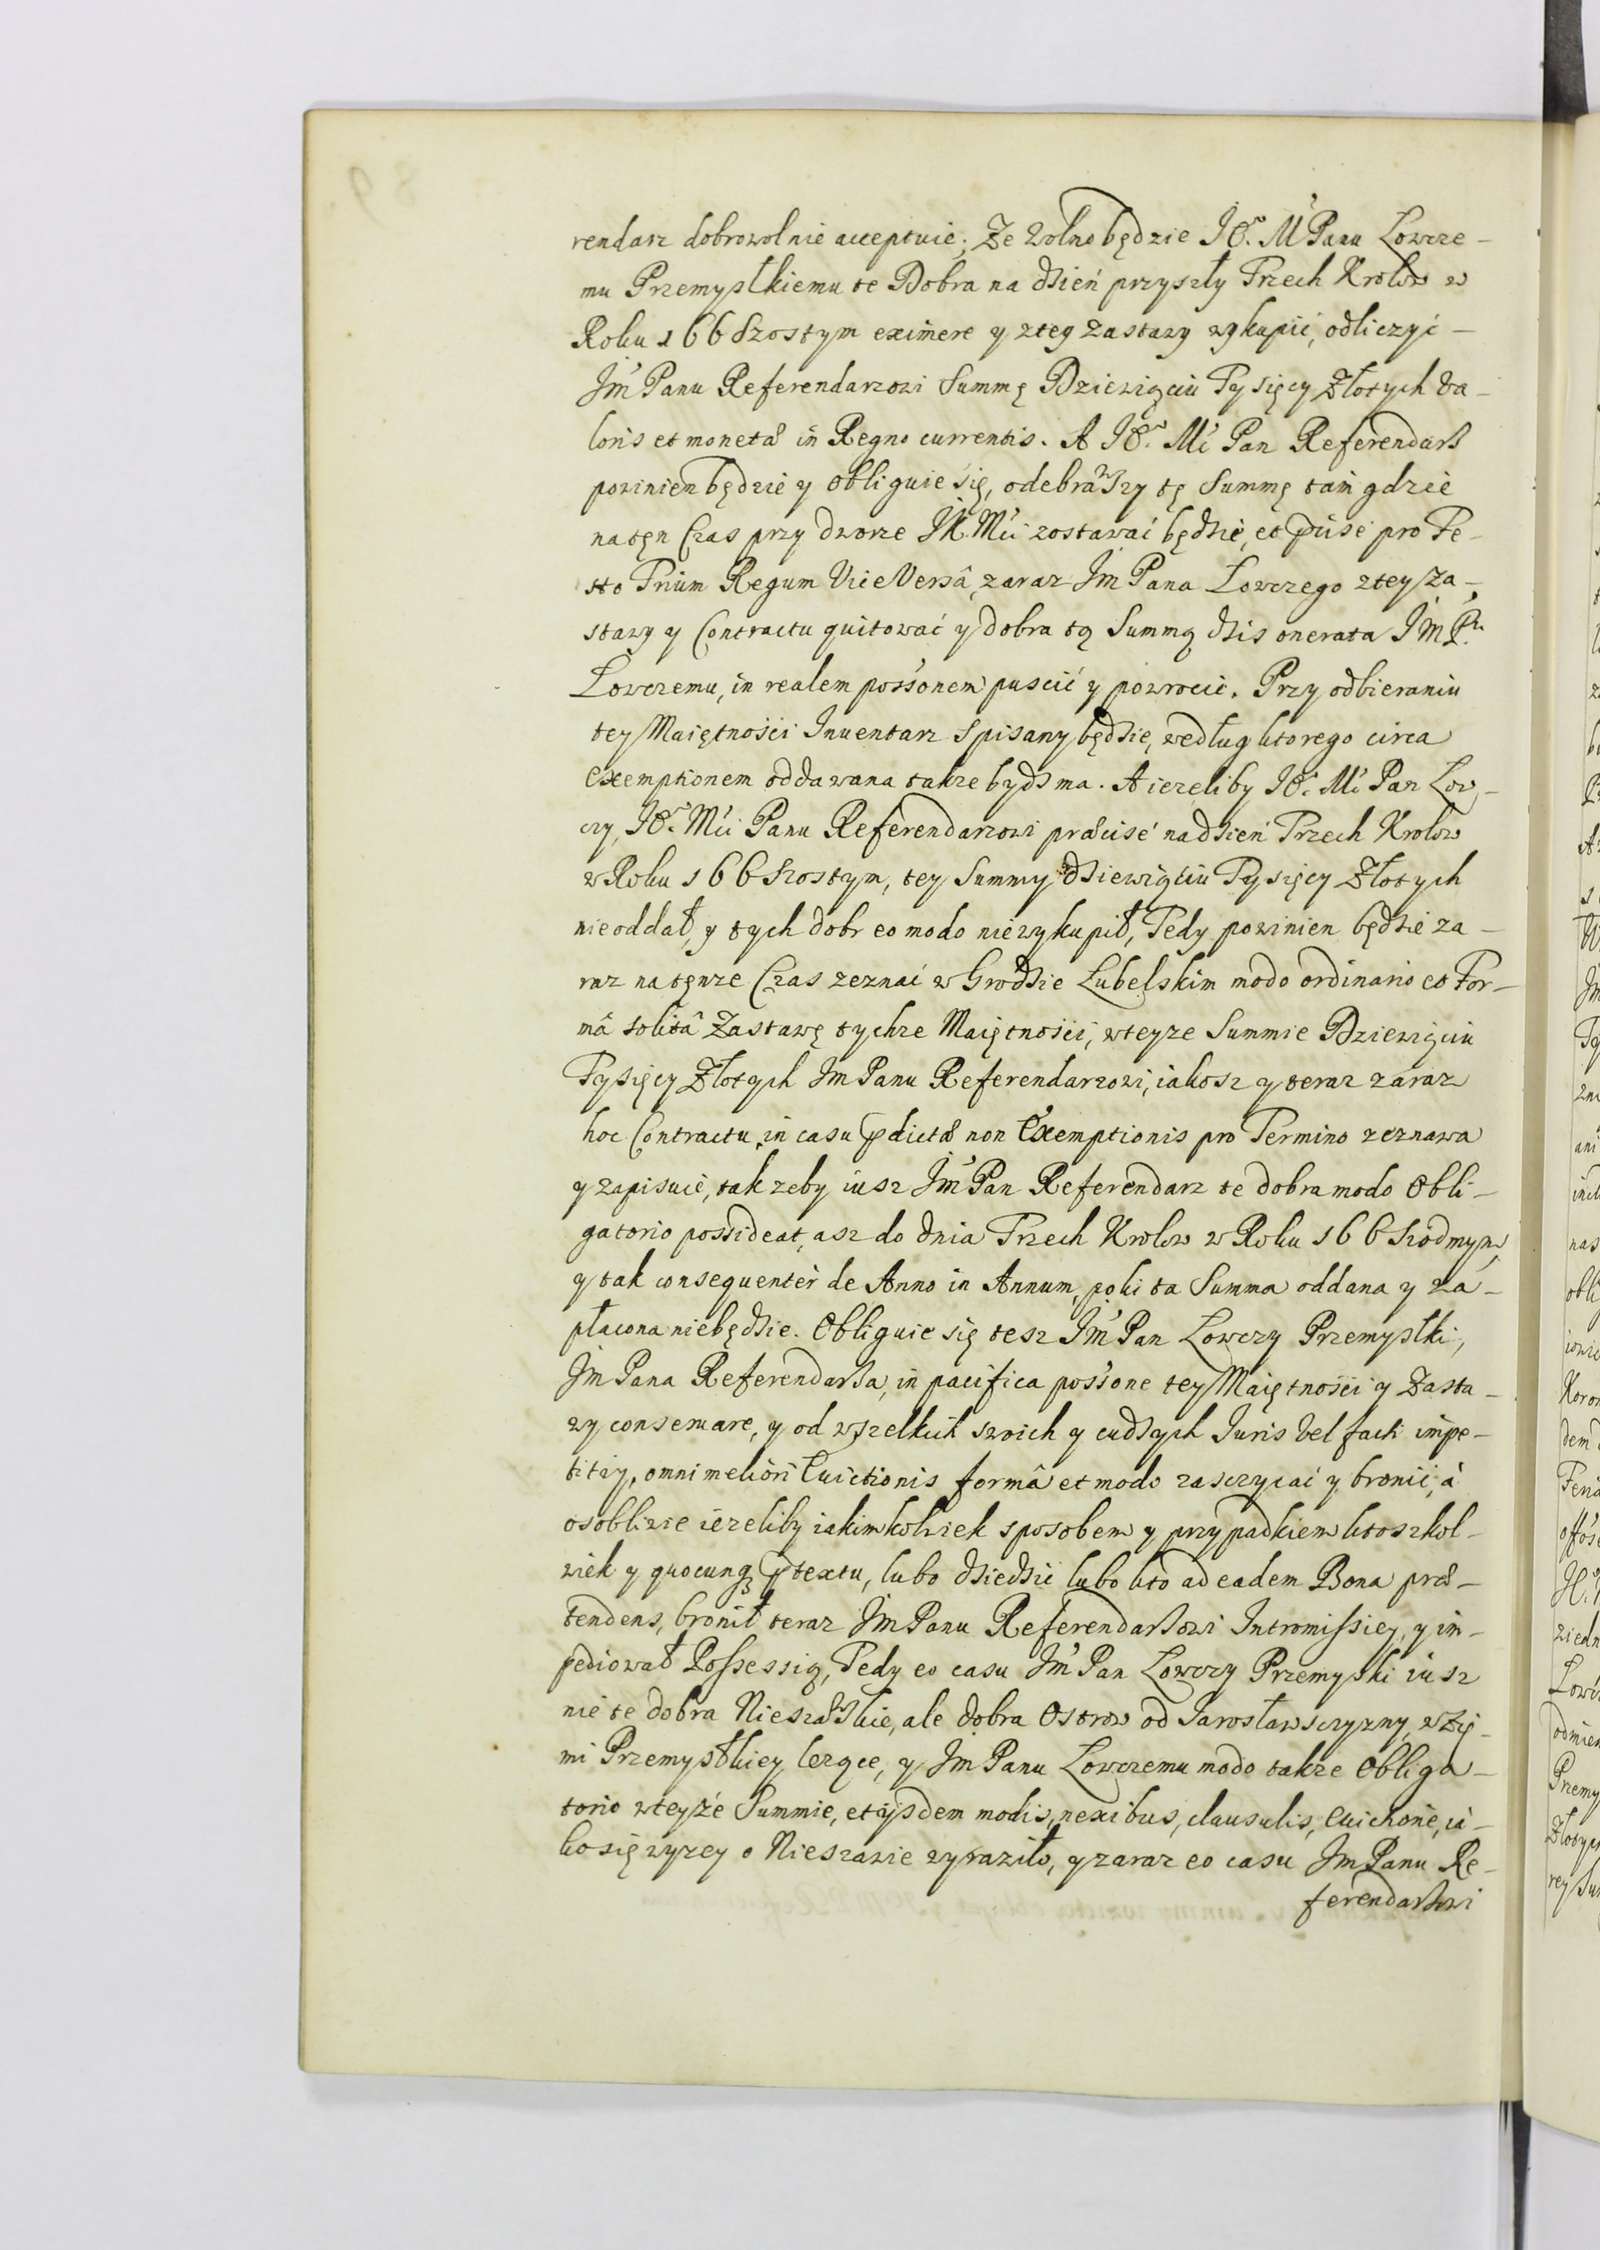 rendarz dobrowolnie acceptuie; Ze Wolno będzie JE. M Panu Lowcze-
mu Przemyslkiemu te Dobra na dzień przyszły Trzech Krolow w
Roku 166 Szostym eximere y z tey Zastawy wykupić, odliczyć-
Jm Panu Referendarzowi Summę Dziewięciu Tysięcy Złotych va-
loris et monetæ in Regno currentis. A JE. Mć Pan Referendarz
powinien będzie y obliguie się, odebrawszy tę Summę tam gdzie
na tęn Czas przy dworze JK Mći zostawać będzie, et præcise pro Fe-
sto Trium Regum Vice Versâ, zaraz Jm Pana Lowczego z tey Za-
stawy y Contractu quitować y dobra tą Summą dzis onerata JM Pu
Lowczemu, in realem poss'onem puscić y powrocić. Przy odbieraniu
tey Maiętności Inuentarz Spisany będzie, według ktorego circa
exemptionem oddawana takze bydz ma. A iezeliby JE. Mć Pan Low-
czy, JE. Mći Panu Referendarzowi præcise na dzień Trzech Krolow
w Roku 166 Szostym, tey Summy dziewięciu Tysięcy Złotych
nie oddał, y tych dobr eo modo nie wykupił, Tedy powinien będzie za-
raz na tęnze Czas zeznać w Grodzie Lubelskim modo ordinario et For-
mâ solitâ Zastawę tychze Maiętności, w teyze Summie Dziewięciu
Tysięcy Złotych Jm Panu Referendarzowi, iakosz y teraz zaraz
hoc Contractu, in casu prædictæ non Exemptionis pro Termino zeznawa
y zapisuie, tak zeby iusz Jm Pan Referendarz te dobra modo Obli-
gatorio possideat, asz do dnia Trzech Krolow w Roku 166 Siodmym,
y tak consequenter de Anno in Annum, poki ta Summa oddana y za-
płacona niebędzie. Obliguie się tesz Jm Pan Lowczy Przemyslki,
Jm Pana Referendarza, in pacifica poss'one tey Maiętności y Zasta-
wy conseruare, y od wszelkich swoich y cudzych Iuris vel facti impe-
titiy, omni meliori Euictionis formâ et modo zasczycać y bronić, à
osobliwie iezeliby iakimkolwiek sposobem y przypadkiem ktoszkol-
wiek y quocunq prætextu, lubo dziedzic lubo kto ad eadem Bona præ-
tendens, bronił teraz Jm Panu Referendarzowi Intromissiey, y im-
pediował Possessią, Tedy eo casu Jm Pan Lowczy Przemyslki iusz
nie te dobra Nieszawskie, ale dobra Ostrow od Jarosławsczyzny, w Zie-
mi Przemyslkiey lezące, y Jm Panu Lowczemu modo takze Obliga-
torio w teyże Summie, et iisdem modis, nexibus, clausulis, Euictione, ia-
ko się wyzey o Nieszawie wyraziło, y zaraz eo casu Jm Panu Re-
ferendarzowi